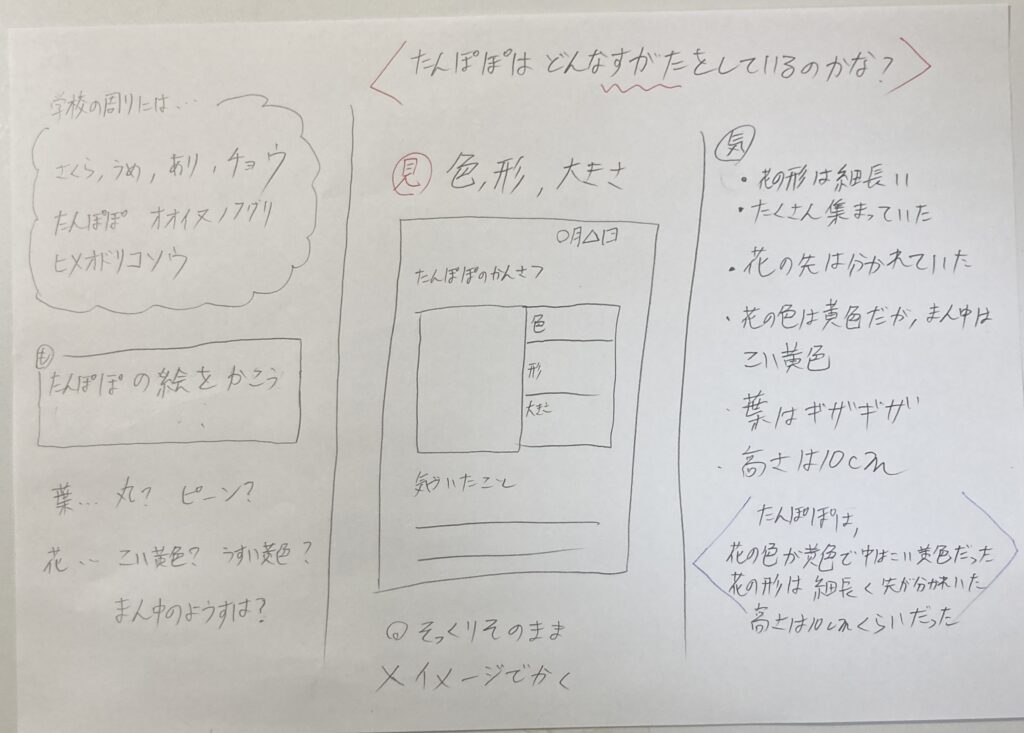 たんぽぽは どんなすがたをしているのかな?
学校の周りには…
さくら,うめ,あり,チョウ
たんぽぽ オオイヌノフグリ
ヒメオドリコソウ
も
たんぽぽの絵をかこう
葉… 丸? ピーン?
花… こい黄色? うすい黄色?
まん中のようすは?
見 色,形,大きさ
○月△日
たんぽぽのかんさつ
色
形
大きさ
気づいたこと
◎そっくりそのまま
×イメージでかく
気
・花の形は細長い
・たくさん集まっていた
・花の先は分かれていた
・花の色は黄色だが,まん中は
こい黄色
・葉はギザギザ
・高さは10cm
たんぽぽは,
花の色が黄色で中はこい黄色だった
花の形は細長く先が分かれていた
高さは10cmくらいだった